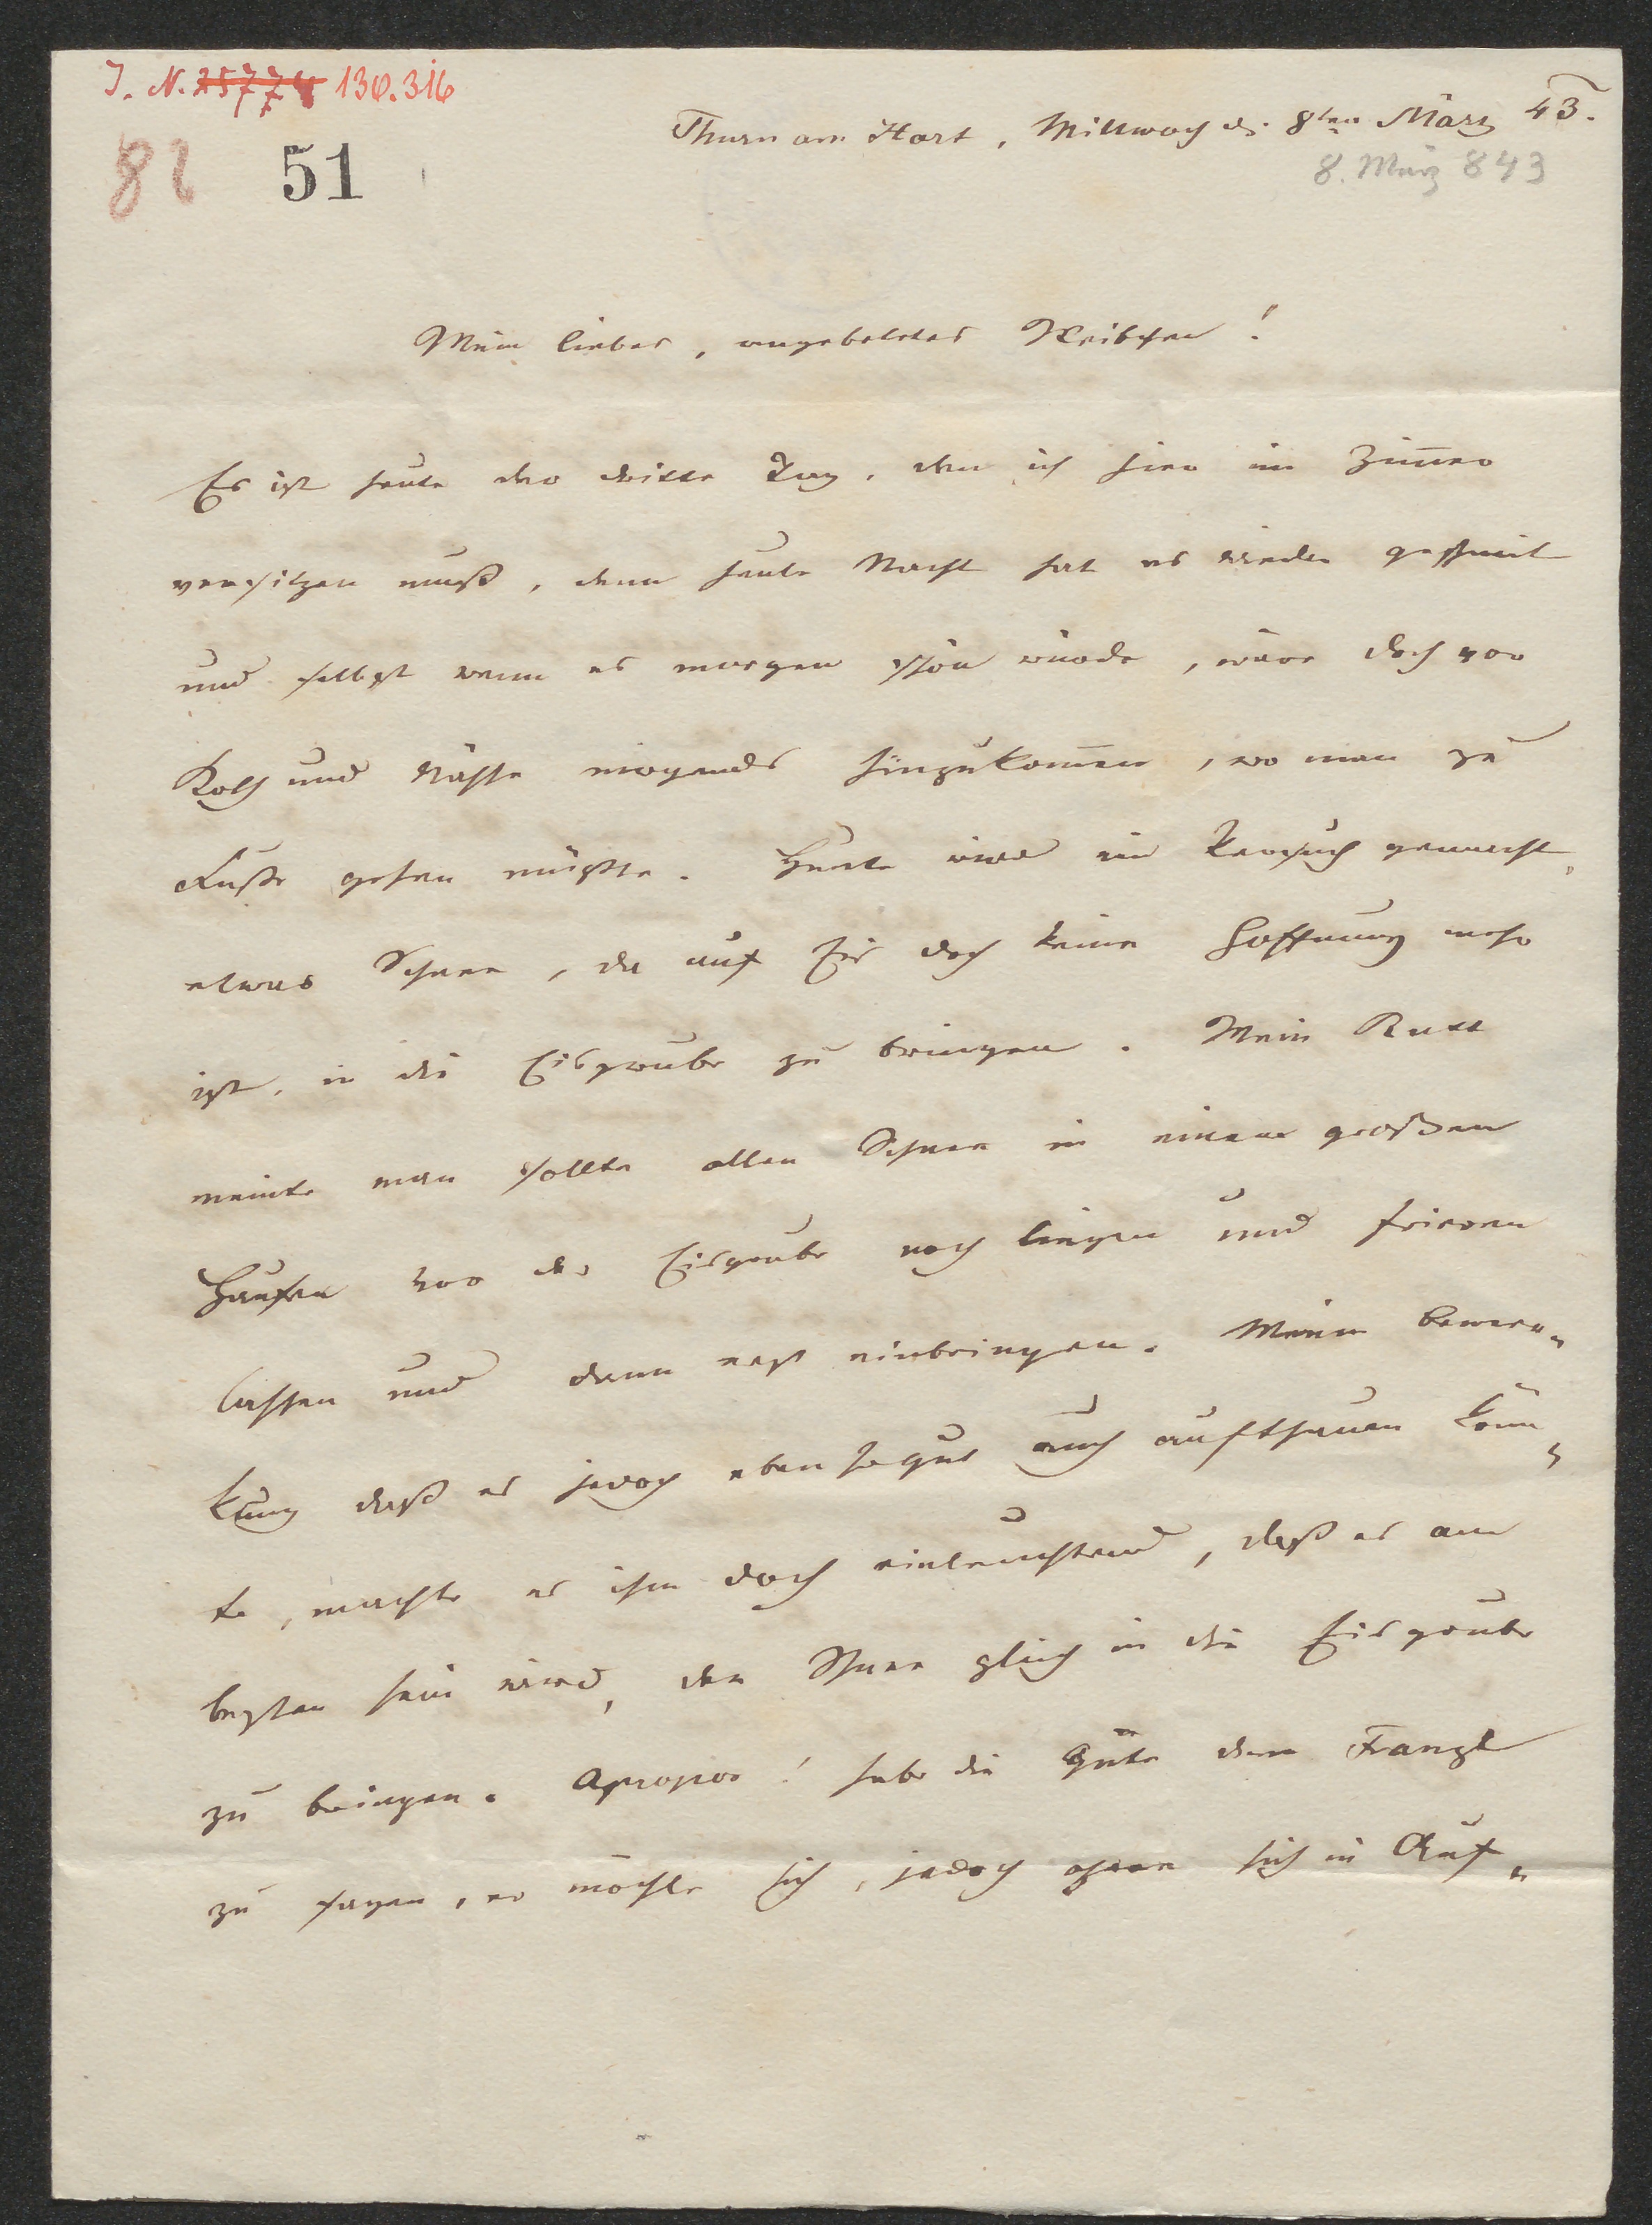 J. N. 25774 130.316
82 51
Thurn am Hart, Mittwoch d. 8ten März 43.
8. März 843
Mein liebes, angebetetes Weibchen!
Es ist heute der dritte Tag, den ich hier im Zim̅er
versitzen muß, denn heute Nacht hat es wieder geschneit
und selbst wenn es morgen schön würde, wäre doch vor
Koth und Nässe nirgends hinzukom̅en, wo man zu
Fuße gehen müßte. Heute wird ein Versuch gemacht,
etwas Schnee, da auf Eis doch keine Hoffnung mehr
ist, in die Eisgrube zu bringen. Mein Rutt
meinte man sollte allen Schnee in einem großen
Haufen vor der Eisgrube noch liegen und frieren
lassen und dann erst einbringen. Meine Bemer„
kung daß es jedoch eben so gut auch aufthauen könn„
te, machte es ihm doch einleuchtend, daß es am
besten sein wird, den Schnee gleich in die Eisgrube
zu bringen. Apropos! habe die Güte dem Franzl
zu sagen, er möchte sich, jedoch ohne sich in Auf„